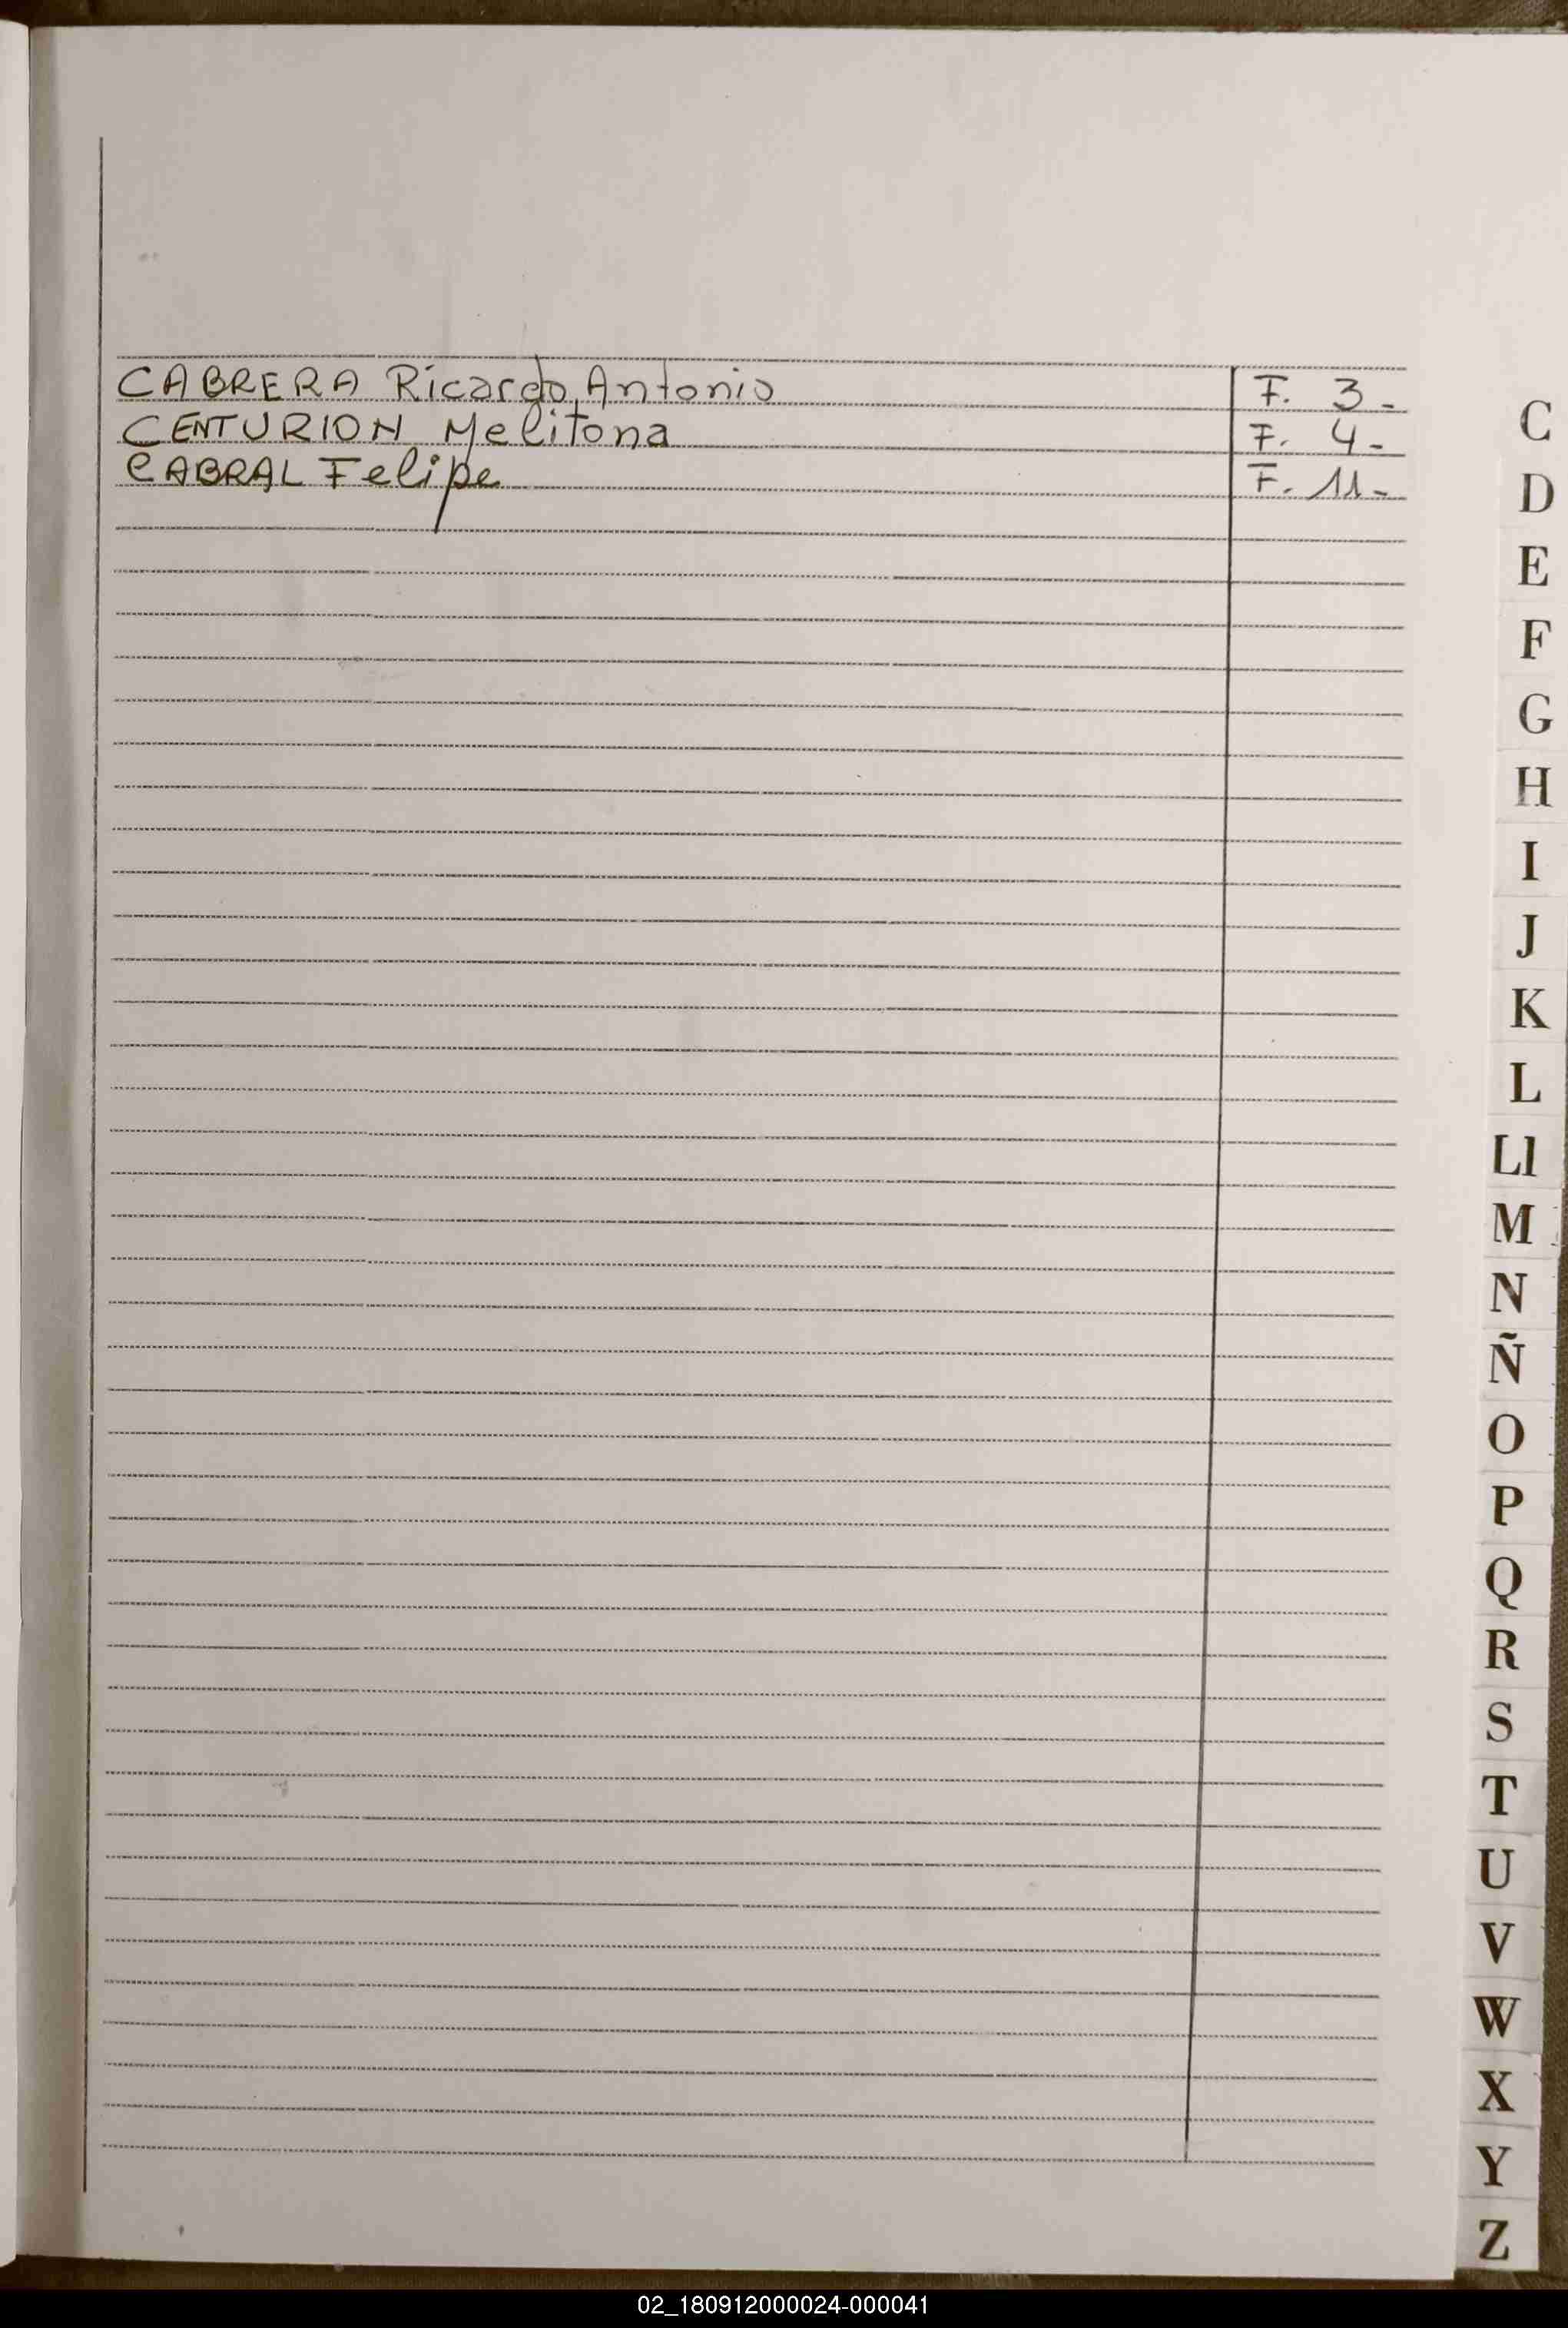 CABRERA Ricardo Antonio F. 3-
CENTURION Melitona F. 4-
CABRAL Felipe F. 11-
C
D
E
F
G
H
I
J
K
L
Ll
M
N
Ñ
O
P
Q
R
S
T
U
V
W
X
Y
Z
02_180912000024-000041